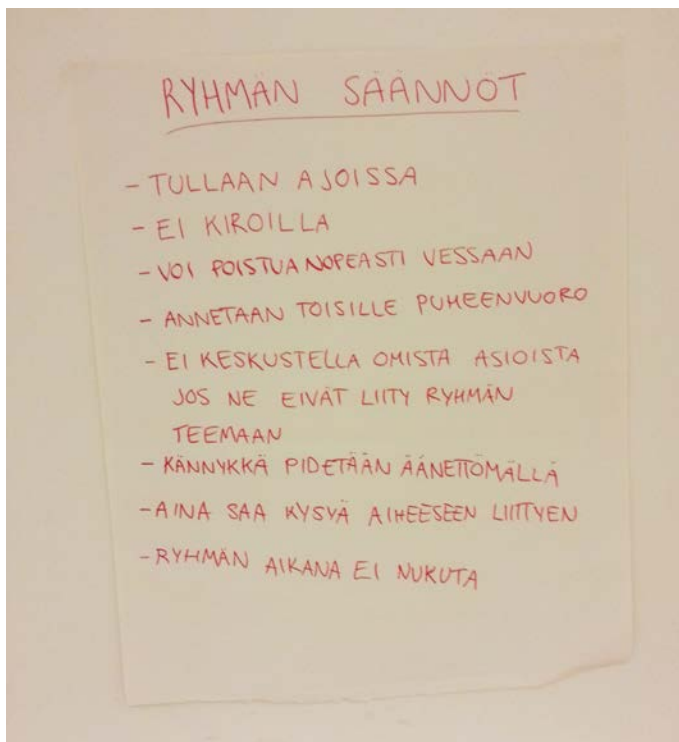 RYHMÄN SÄÄNNÖT
- TULLAAN AJOISSA
- EI KIROILLA
- VOI POISTUA NOPEASTI VESSAAN
- ANNETAAN TOISILLE PUHEENVUORO
- EI KESKUSTELLA OMISTA ASIOISTA
JOS NE EIVÄT LIITY RYHMÄN
TEEMAAN
- KÄNNYKKÄ PIDETÄÄN ÄÄNETTÖMÄLLÄ
- AINA SAA KYSYÄ AIHEESEEN LIITTYEN
- RYHMÄN AIKANA EI NUKUTA